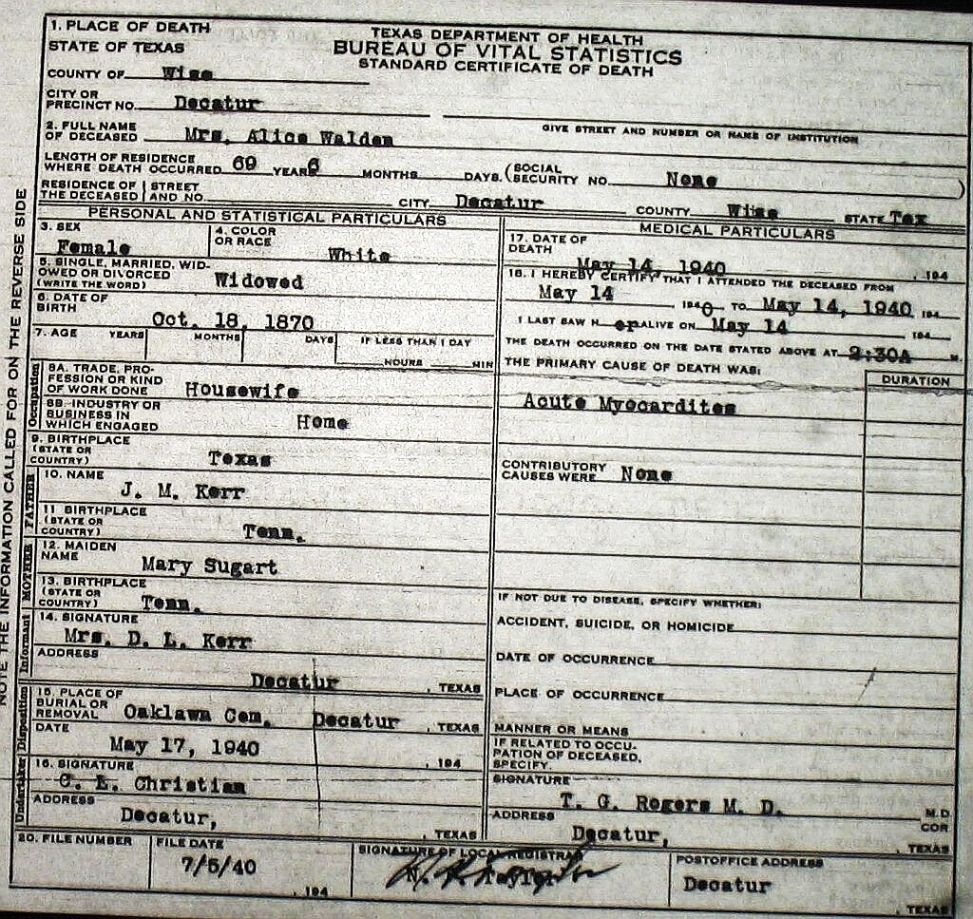 1. PLACE OF DEATH
STATE OF TEXAS
TEXAS DEPARTMENT OF HEALTH
BUREAU OF VITAL STATISTICS
STANDARD CERTIFICATE OF DEATH
COUNTY OF Wise
CITY OR
PRECINCT NO. Decatur
GIVE STREET AND NUMBER OR NAME OF INSTITUTION
2. FULL NAME
OF DECEASED Mrs. Alice Walden
LENGTH OF RESIDENCE
WHERE DEATH OCCURRED 69 YEARS 6 MONTHS DAYS. (SOCIAL SECURITY NO. None )
RESIDENCE OF STREET
THE DECEASED AND NO. CITY Decatur COUNTY Wise STATE Tex
PERSONAL AND STATISTICAL PARTICULARS
3. SEX
Female
4. COLOR
OR RACE White
5. SINGLE, MARRIED, WID-
OWED OR DIVORCED
(WRITE THE WORD) Widowed
6. DATE OF
BIRTH Oct. 18, 1870
7. AGE YEARS MONTHS DAYS IF LESS THAN 1 DAY
HOURS MIN
Occupation
8A. TRADE, PRO-
FESSION OR KIND
OF WORK DONE Housewife
8B. INDUSTRY OR
BUSINESS IN
WHICH ENGAGED Home
9. BIRTHPLACE
(STATE OR
COUNTRY) Texas
FATHER
10. NAME
J. M. Kerr
11 BIRTHPLACE
(STATE OR
COUNTRY) Tenn.
MOTHER
12. MAIDEN
NAME Mary Sugart
13. BIRTHPLACE
(STATE OR
COUNTRY) Tenn.
Informant
14. SIGNATURE
Mrs. D. L. Kerr
ADDRESS
Decatur , TEXAS
Disposition
15. PLACE OF
BURIAL OR
REMOVAL Oaklawn Cem. Decatur , TEXAS
DATE
May 17, 1940 , 194
Undertaker
16. SIGNATURE
C. E. Christian
ADDRESS
Decatur, , TEXAS
MEDICAL PARTICULARS
17. DATE OF
DEATH May 14, 1940 , 194
18. I HEREBY CERTIFY THAT I ATTENDED THE DECEASED FROM
May 14 1940 TO May 14, 1940 194
I LAST SAW H er ALIVE ON May 14 194
THE DEATH OCCURRED ON THE DATE STATED ABOVE AT 2:30A M.
THE PRIMARY CAUSE OF DEATH WAS:
DURATION
Acute Myocardites
CONTRIBUTORY
CAUSES WERE None
IF NOT DUE TO DISEASE, SPECIFY WHETHER:
ACCIDENT, SUICIDE, OR HOMICIDE
DATE OF OCCURRENCE
PLACE OF OCCURRENCE
MANNER OR MEANS
IF RELATED TO OCCU-
PATION OF DECEASED,
SPECIFY.
SIGNATURE
T. G. Rogers M. D. M.D.
COR
ADDRESS
Decatur, , TEXAS
20. FILE NUMBER
FILE DATE
7/5/40 , 194
SIGNATURE OF LOCAL REGISTRAR
POSTOFFICE ADDRESS
Decatur , TEXAS
NOTE THE INFORMATION CALLED FOR ON THE REVERSE SIDE